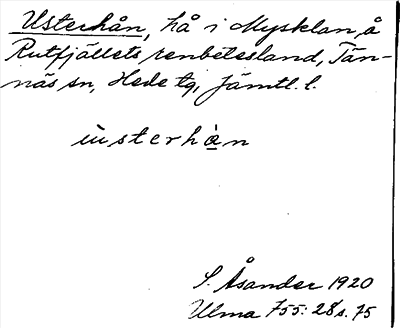 Usterhån, hå i Mysklan, å
Rutfjällets renbetesland, Tän-
näs sn, Hede tg, Jämtl. l.
ùsterhàn
S. Åsander 1920
Ulma 755: 28 s. 75